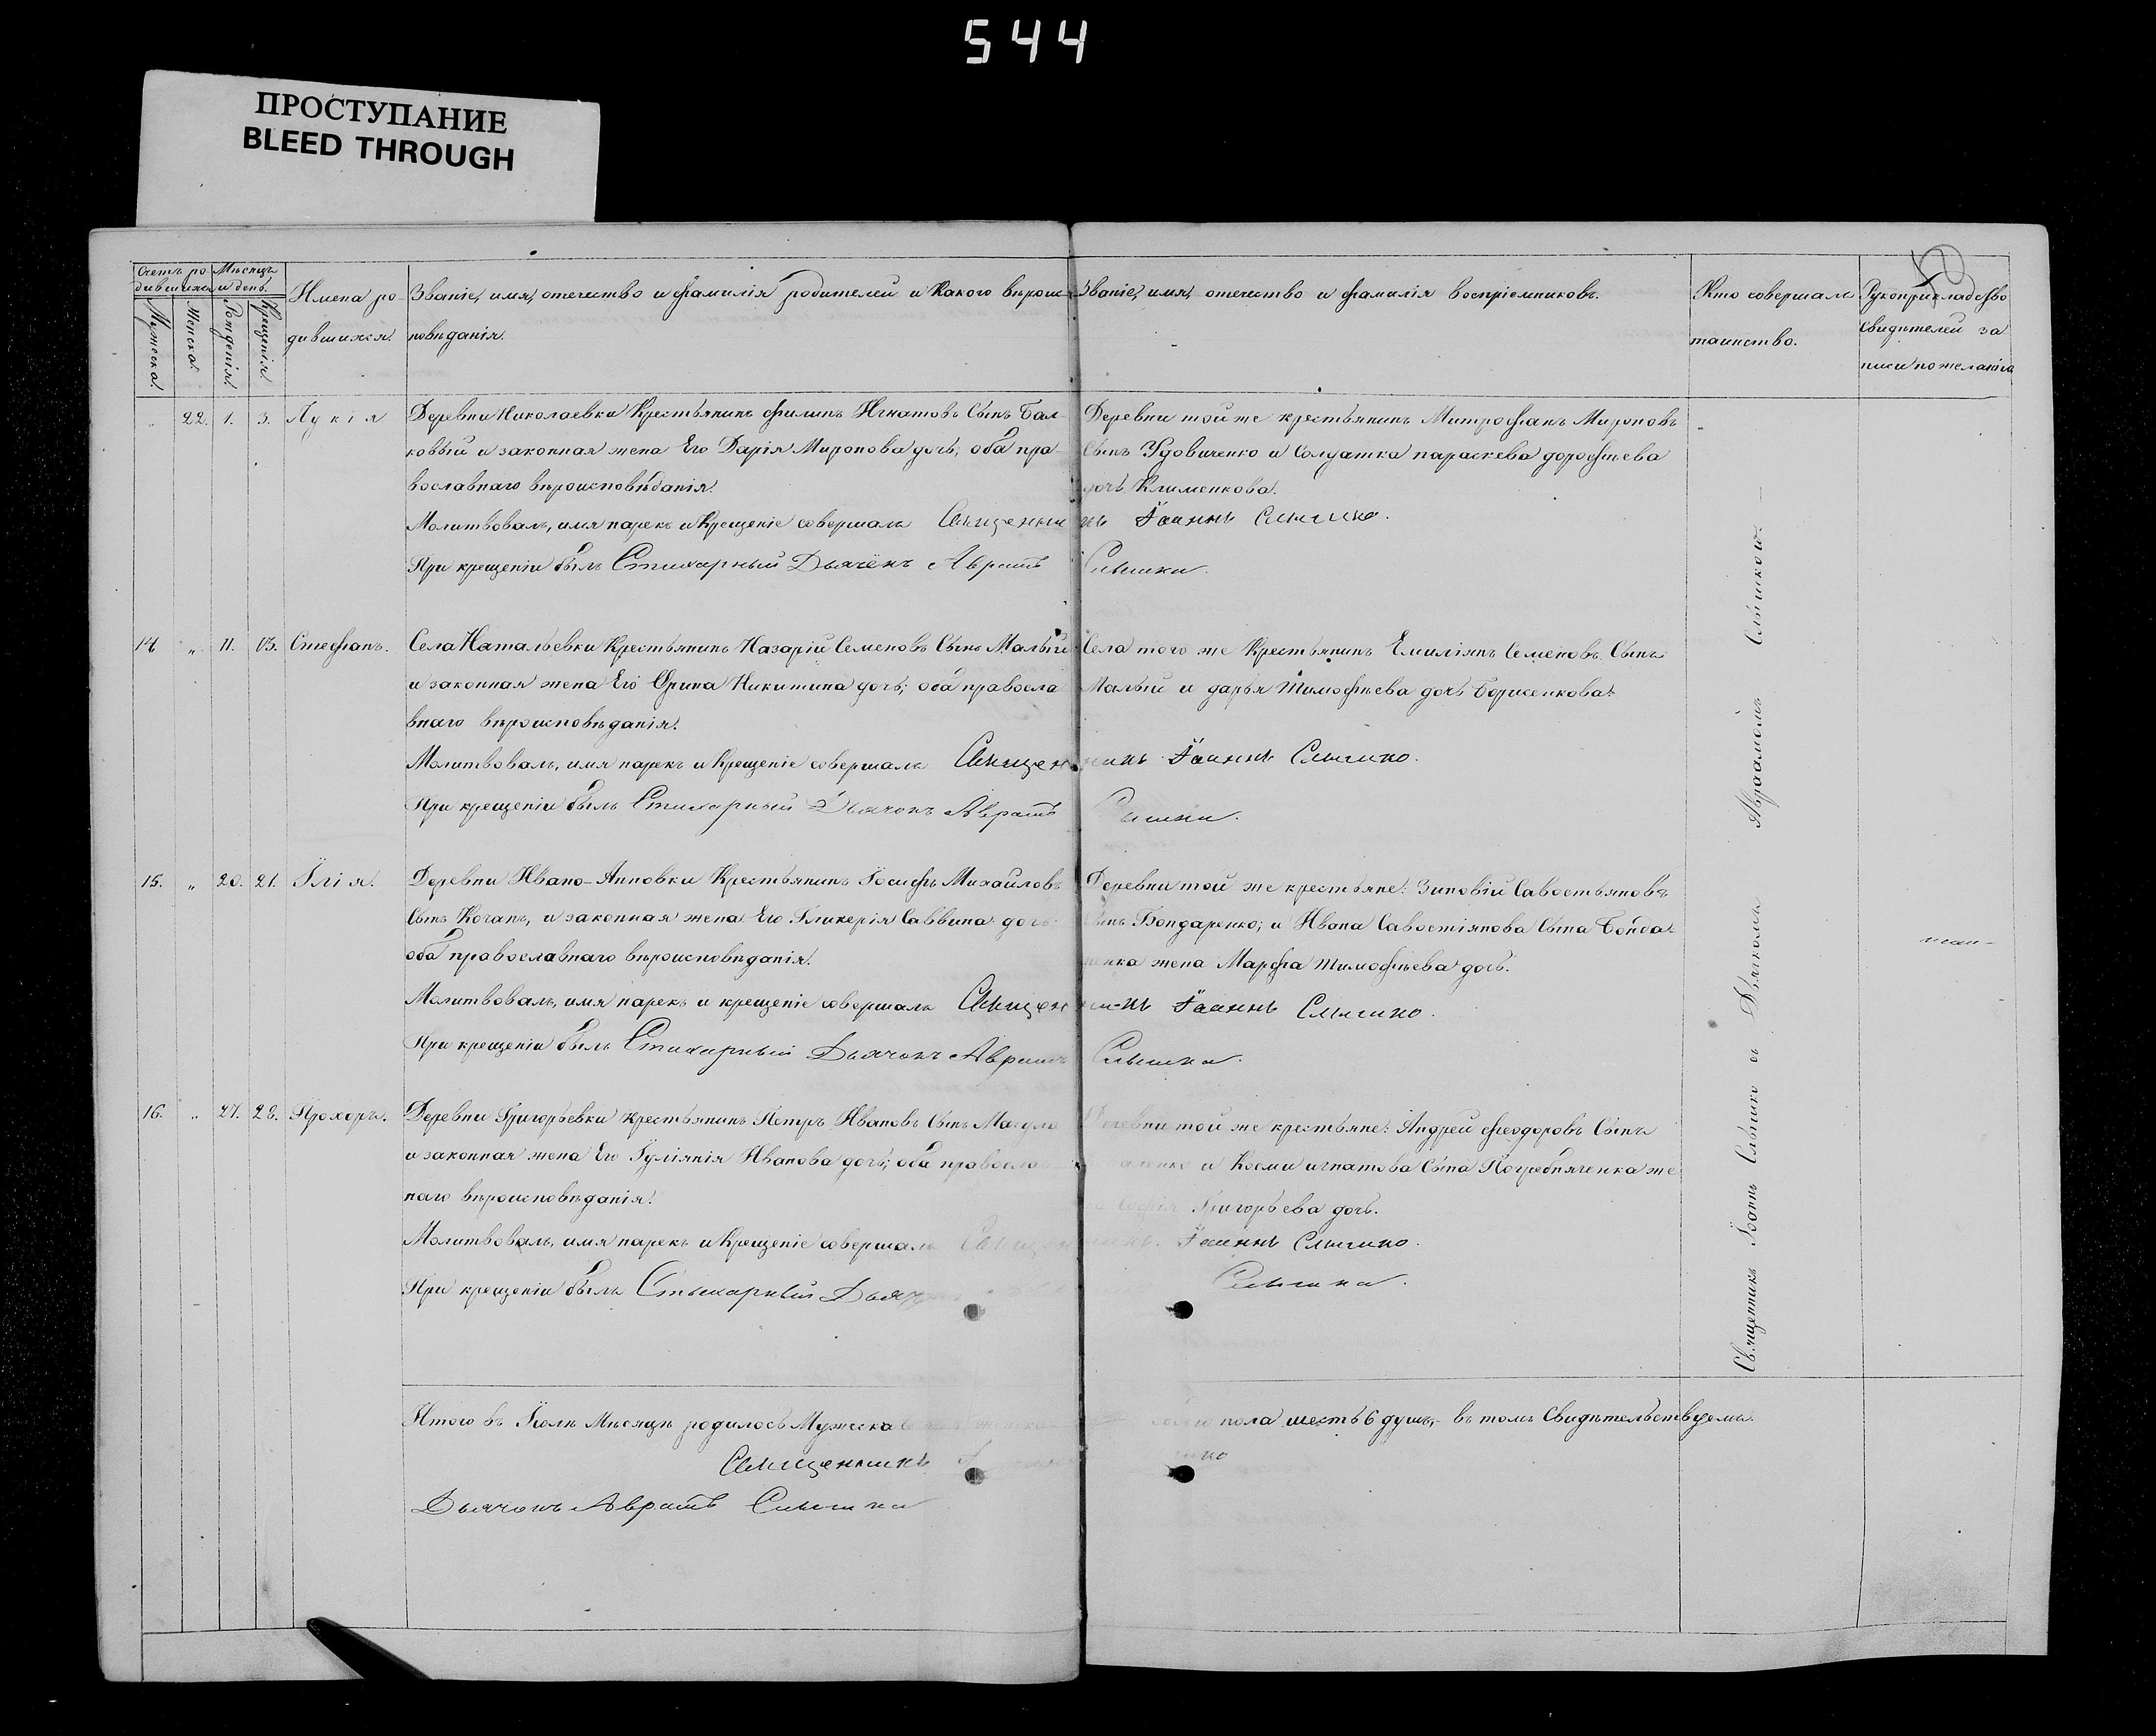 544
ПРОСТУПАНИЕ
BLEED THROUGH
Счетъ родившихся
Мѣсяцъ и день.
Мужеска.
Женска.
Рожденія.
Крещенія.
Имена родившихся.
Званіе, имя, отечество и фамилія родителей и какого вѣроисповѣданія.
Званіе, имя, отечество и фамилія воспріемниковъ.
Кто совершалъ таинство.
Рукоприкладство свидѣтелей записи по желанію
22. 1. 3. Лукія
Деревни Николаевки Крестьянинъ Филипъ Игнатовъ Сынъ Бал-
ковый и законная жена Его Дарія Миронова дочь; оба пра-
вославнаго вѣроисповѣданія.
Деревни той же крестьянинъ Митрофанъ Мироновъ
Сынъ Удовиченко и Солдатка параскева дорофѣева
дочь Клименкова.
Молитвовалъ, имя нарекъ и Крещеніе совершалъ Священникъ Іоаннъ Слышко.
При крещеніи былъ Стихарный Дьячёкъ Аврамъ Слышко.
14 " 11. 13. Стефанъ.
Села Натальевки Крестьянинъ Назарій Семеновъ Сынъ Малый
и законная жена Его Ѳрина Никитина дочь; оба правосла
внаго вѣроисповѣданія.
Села того же Крестьянинъ Емиліянъ Семеновъ Сынъ
Малый и дарья Тимофѣева дочь Борисенкова.
Молитвовалъ, имя нарекъ и Крещеніе совершалъ Священникъ Іоаннъ Слышко.
При крещеніи былъ Стихарный Дьячокъ Аврамъ Слышко.
15. " 20. 21. Ілія.
Деревни Ивано-Анновки Крестьянинъ Іосифъ Михайловъ
Сынъ Коганъ, и законная жена Его Гликерія Саввина дочь
оба православнаго вѣроисповѣданія.
Деревни той же крестьяне: Зиновій Савостьяновъ
Сынъ Бондаренко; и Ивана Савостіянова Сына Бонда-
ренка жена Марфа Тимофѣева дочь.
Молитвовалъ, имя нарекъ и крещеніе совершалъ Священникъ Іоаннъ Слышко.
При крещеніи былъ Стихарный Дьячокъ Аврамъ Слышко.
16. " 27. 28. Прохоръ.
Деревни Григорьевки крестьянинъ Петръ Ивановъ Сынъ
и законная жена Его Іуліянія Иванова дочь; оба православ
наго вѣроисповѣданія.
Деревни той же крестьяне: Андрей Феодоровъ Сынъ
и Космы игнатова Сына Погребняченка же
на Софія Григорьева дочь.
Молитвовалъ, имя нарекъ и Крещеніе совершалъ Священникъ Іоаннъ Слышко.
При крещеніи былъ Стихарный Дьячокъ Слышко.
Священникъ Іоаннъ Слышко съ Дьячкомъ Авраамомъ Слышкомъ
Итого въ Іюлѣ Мѣсяцѣ родилось Мужеска пола шесть 6 душъ, въ томъ Свидѣтельствуемъ.
Священникъ
Дьячокъ Аврамъ Слышко